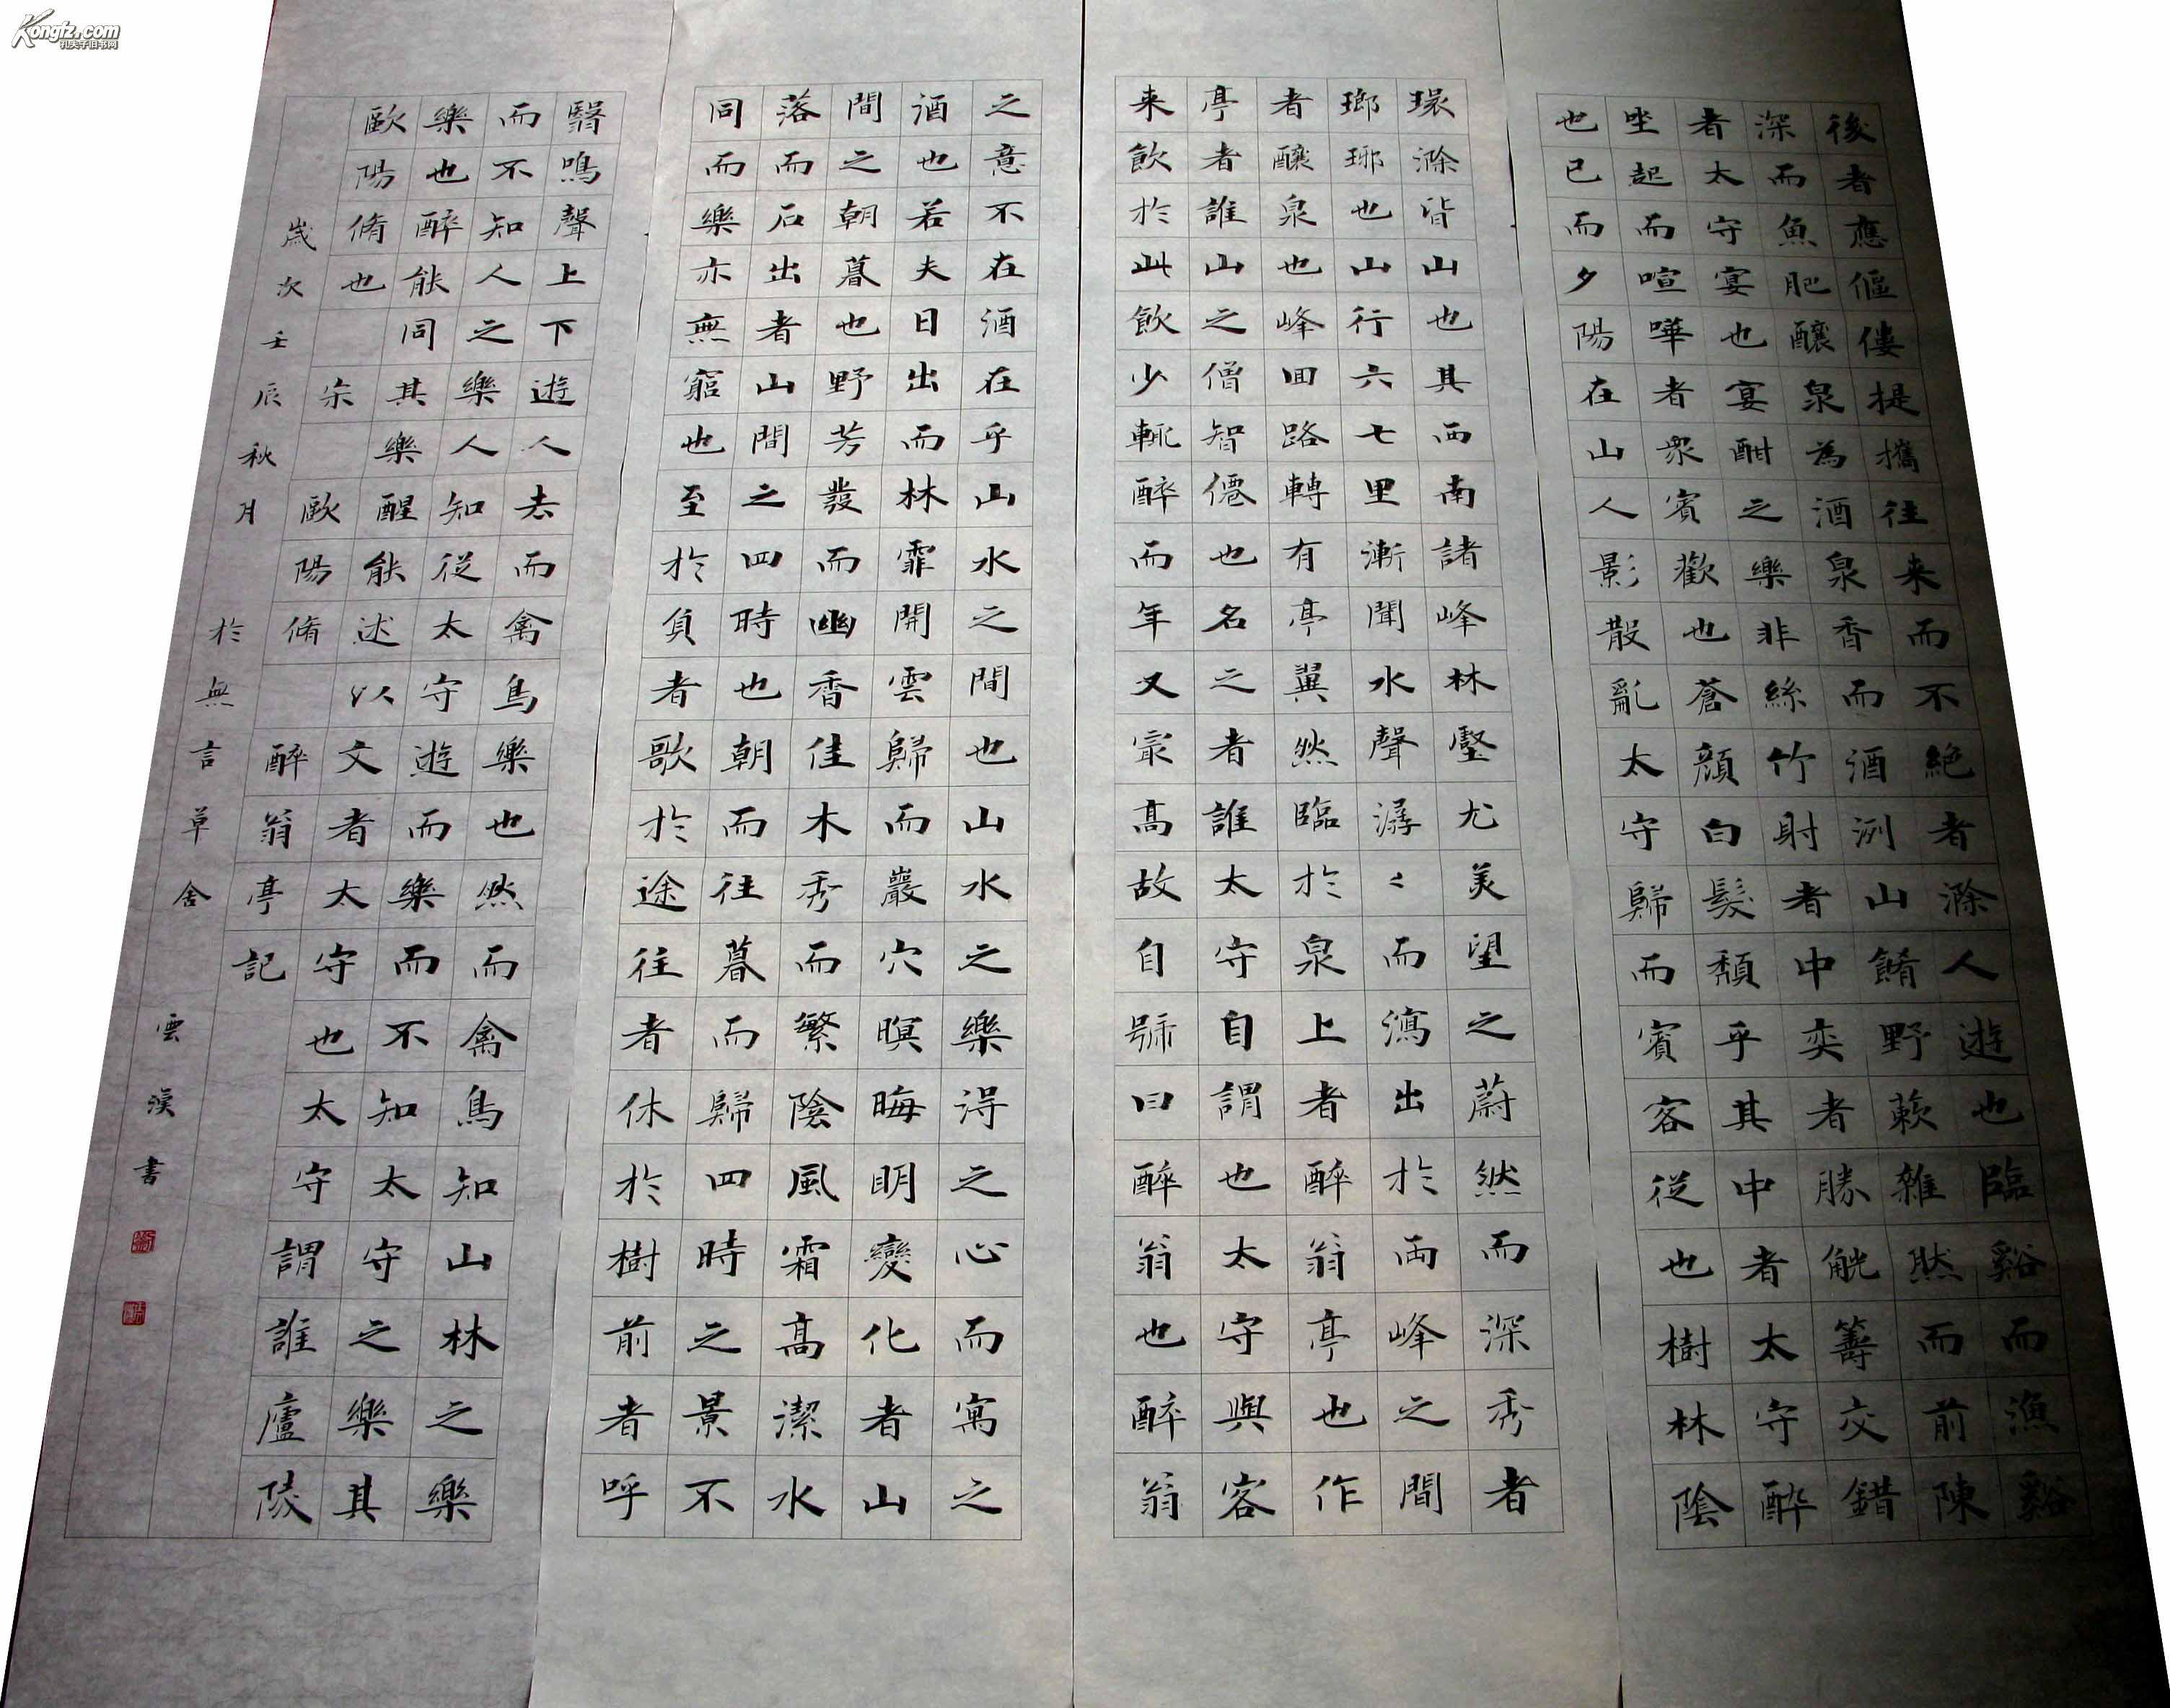 後者應傴僂提攜往来而不絶者滁人遊也臨谿而漁谿
深而魚肥釀泉為酒泉香而酒洌山餚野蔌雜然而前陳
者太守宴也宴酣之樂非絲竹射者中奕者勝觥籌交錯
坐起而喧嘩者衆賓歡也蒼顔白髮頽乎其中者太守醉
也已而夕陽在山人影散亂太守歸而賓客從也樹林陰
環滁皆山也其西南諸峰林壑尤美望之蔚然而深秀者
瑯琊也山行六七里漸聞水聲潺〻而瀉出於兩峰之間
者釀泉也峰回路轉有亭翼然臨於泉上者醉翁亭也作
亭者誰山之僧智僊也名之者誰太守自謂也太守與客
来飲於此飲少輒醉而年又最高故自號曰醉翁也醉翁
之意不在酒在乎山水之間也山水之樂得之心而寓之
酒也若夫日出而林霏開雲歸而巖穴暝晦明變化者山
間之朝暮也野芳發而幽香佳木秀而繁陰風霜高潔水
落而石出者山間之四時也朝而往暮而歸四時之景不
同而樂亦無窮也至於負者歌於途往者休於樹前者呼
翳鳴聲上下遊人去而禽鳥樂也然而禽鳥知山林之樂
而不知人之樂人知從太守遊而樂而不知太守之樂其
樂也醉能同其樂醒能述以文者太守也太守謂誰廬陵
歐陽脩也 宋 歐陽脩 醉翁亭記
歲次壬辰秋月 於無言草舍 雲漢書
Kongfz.com
孔夫子旧书网